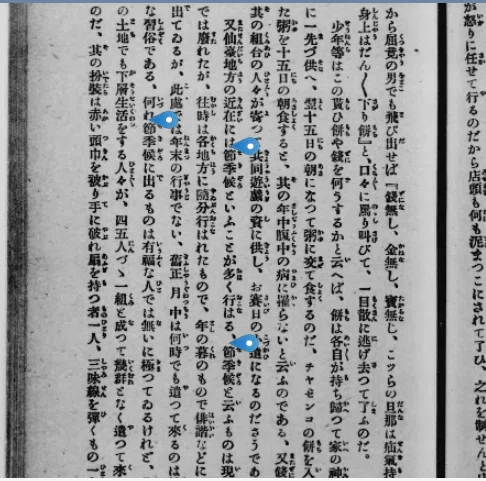 が怒りに任せて行るのだから店頭も何も泥まつこにされて了ひ、それを制せんと
から屈竟の男でも飛び出せば『錢無し、金無し、寶無し、こツらの旦那は疝氣持
身上はだん〱下り餅』と、口々に罵り叫びて、一目散に逃げ去つて了ふのだ。
少年等はこの貰ひ餅や錢を何うするかと云へば、餅は各自が持ち歸つて家の神
に一先づ供へ、翌十五日の朝になつて粥に交て食するのだ、チヤセンコの餅を入
た粥を十五日の朝食すると、其の年中腹中の病に罹らないと云ふのである、又錢
其の組台の人々が寄つ 共同遊戯の資に供し、お賽日の 遣になるのださうであ
又仙臺地方の近在には節季候といふことが多く行はる、節季候と云ふものは現
では廢れたが、往時は各地方に隨分行はれたもので、年の暮のもので俳諧などに
出てゐるが、此處では年末の行事でない、舊正月中は何時でも遣つて來るのは
な習俗である、何れ節季候に出るものは有福な人では無いに極つてゐるけれど、
の土地でも下層生活をする人々が、四五人づゝ一組と成つて幾群となく遣つて來
のだ、其の扮裝は赤い頭巾を被り手に破れ扇を持つ者一人、三味線を彈くもの一